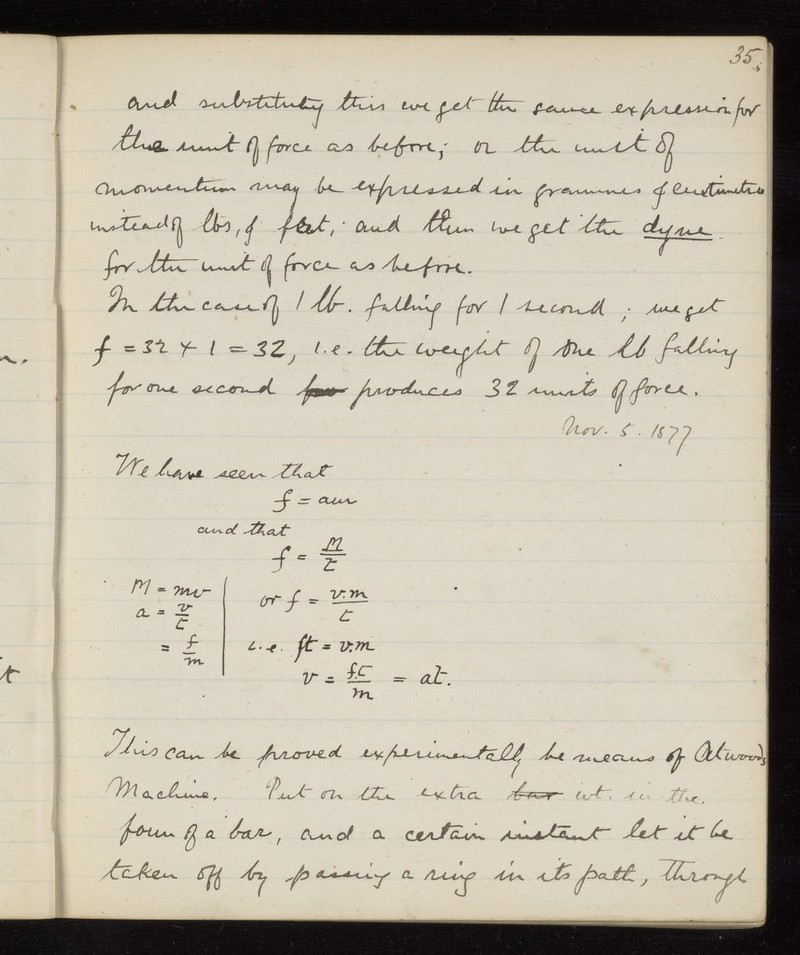 35.
and substituting this we get the same expression for
the unit of force as before; or the unit of
momentum may be expressed in grammes & centimetres
instead of lbs, & feet, and then we get the dyne
for the unit of force as before.
In the case of 1 lb. falling for 1 second; we get
f = 32 × 1 = 32, i.e. the weight of one lb falling
for one second produces 32 units of force.
Nov. 5. 1877
We have seen that
f = am
and that
f = M/t
M = mv
a = v/t
= f/m
or f = v.m/t
i.e. ft = v.m
v = f.t/m = at.
This can be proved experimentally be means of Atwoods
Machine. Put on the extra bar wt. in the
form of a bar, and a certain instant let it be
taken off by passing a ring in its path, through